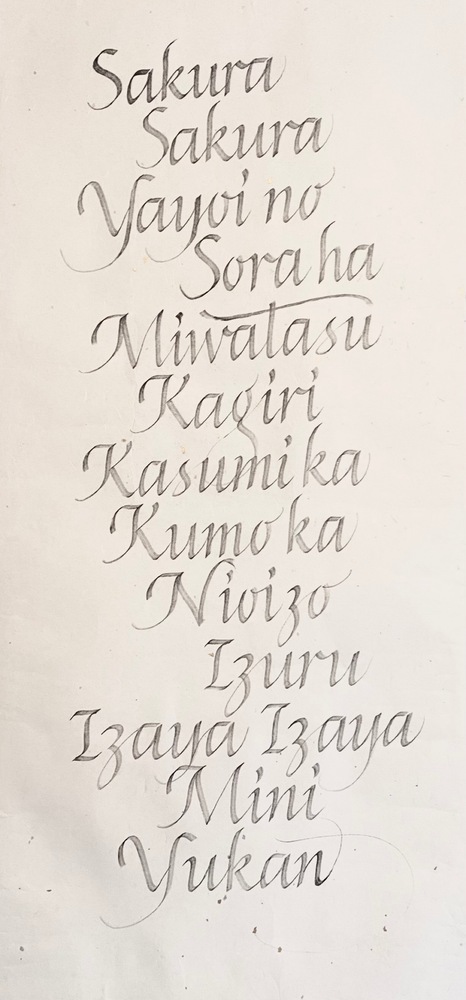 Sakura
Sakura
Yayoi no
Sora ha
Miwatasu
Kagiri
Kasumi ka
Kumo ka
Nioizo
Izuru
Izaya Izaya
Mini
Yukan